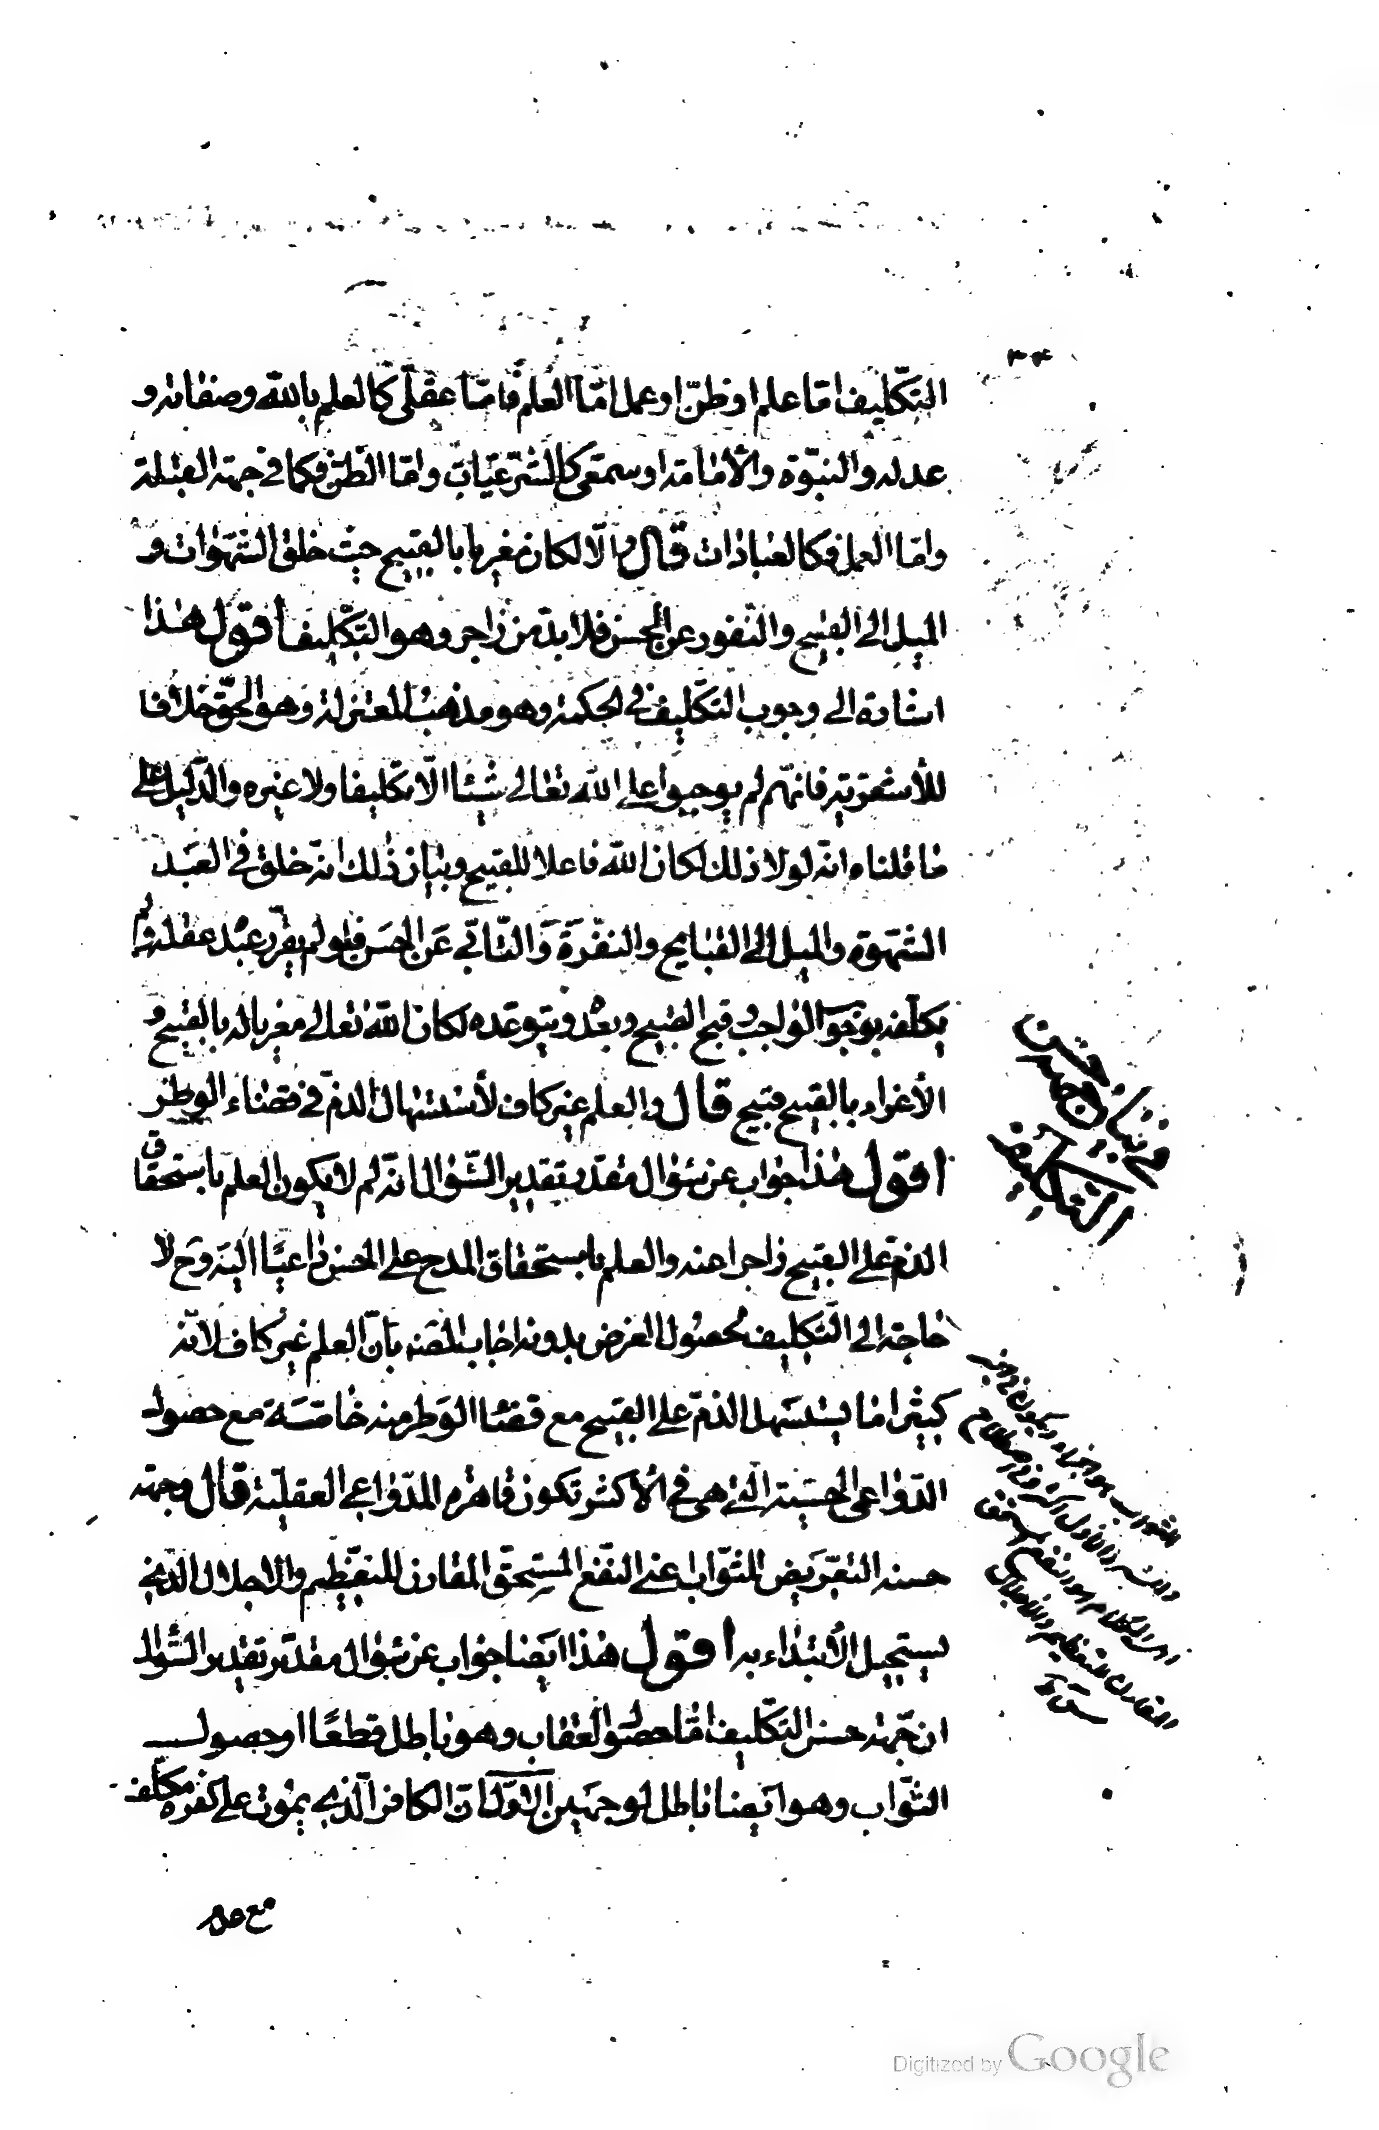 ٣٤
التّكليف امّا علم او ظنّ او عمل امّا العلم فامّا عقلّى كالعلم بالله وصفاته و
عدله والنبّوة والأمامة او سمعى كالشّرعيّات وامّا الظّن فكما فى جهة القبلة
وامّا العمل فكالعبادات قال والّا لكان مغريا بالقبيح حيث خلق الشهوات و
الميل الى القبيح والنّفور عن الحسن فلا بدّ من زاجر وهو التّكليف اقول هذا
اشارة الى وجوب التّكليف فى الحكمة وهو مذهب المعتزلة وهو الحقّ خلافا
للأشعريّة فانهّم لم يوجبوا على الله تعالى شيئا الّا تكليفا ولا غيره والدّليل على
ما قلناه انّه لولا ذلك لكان الله فاعلا للقبيح وبيان ذلك انّه خلق فى العبد
الشهّوة والميل الى القبايح والنفّرة والتّأبّى عن الحسن فلو لم يقرّر عبد عقله ولم
يكلّفه بوجوب الواجب وقبح القبيح وبعده ويتوعّده لكان الله تعالى مغريا له بالقبيح و
الأغراء بالقبيح قبيح قال والعلم غير كاف لأستسهال الذمّ فى قضاء الوطر
اقول هذا جواب عن سؤال مقدّر تقدير السّؤال انّه لم لا يكون العلم باستحقاق
الذمّ على القبيح زاجرا عنه والعلم باستحقاق المدح على الحسن داعيًا اليه وح لا
حاجة الى التّكليف لحصول الغرض بدونه اجاب المصنه بانّ العلم غير كاف لانّه
كثيرا ما يستسهل الذمّ على القبيح مع قضاء الوطر منه خاصّة مع حصول
الدّواعى الحسّية الّتى هى فى الأكثر تكون قاهرة للدّواعى العقليّة قال وجهة
حسنه التعّريض للثّواب اعنى النّفع المستحقّ المقارن للتعّظيم والاجلال الّذى
يستحيل الأبتداء به اقول هذا ايضا جواب عن سؤال مقدّر تقدير السّؤال
ان جهّة حسن التكّليف امّا حصول العقاب وهو باطل قطعًا او حصول
الثّواب وهو ايضا باطل لوجهين الاوّل انّ الكافر الّذى يموت على كفره مكلّف
مع عدم
فى بيان جهة حسن
التّكليف